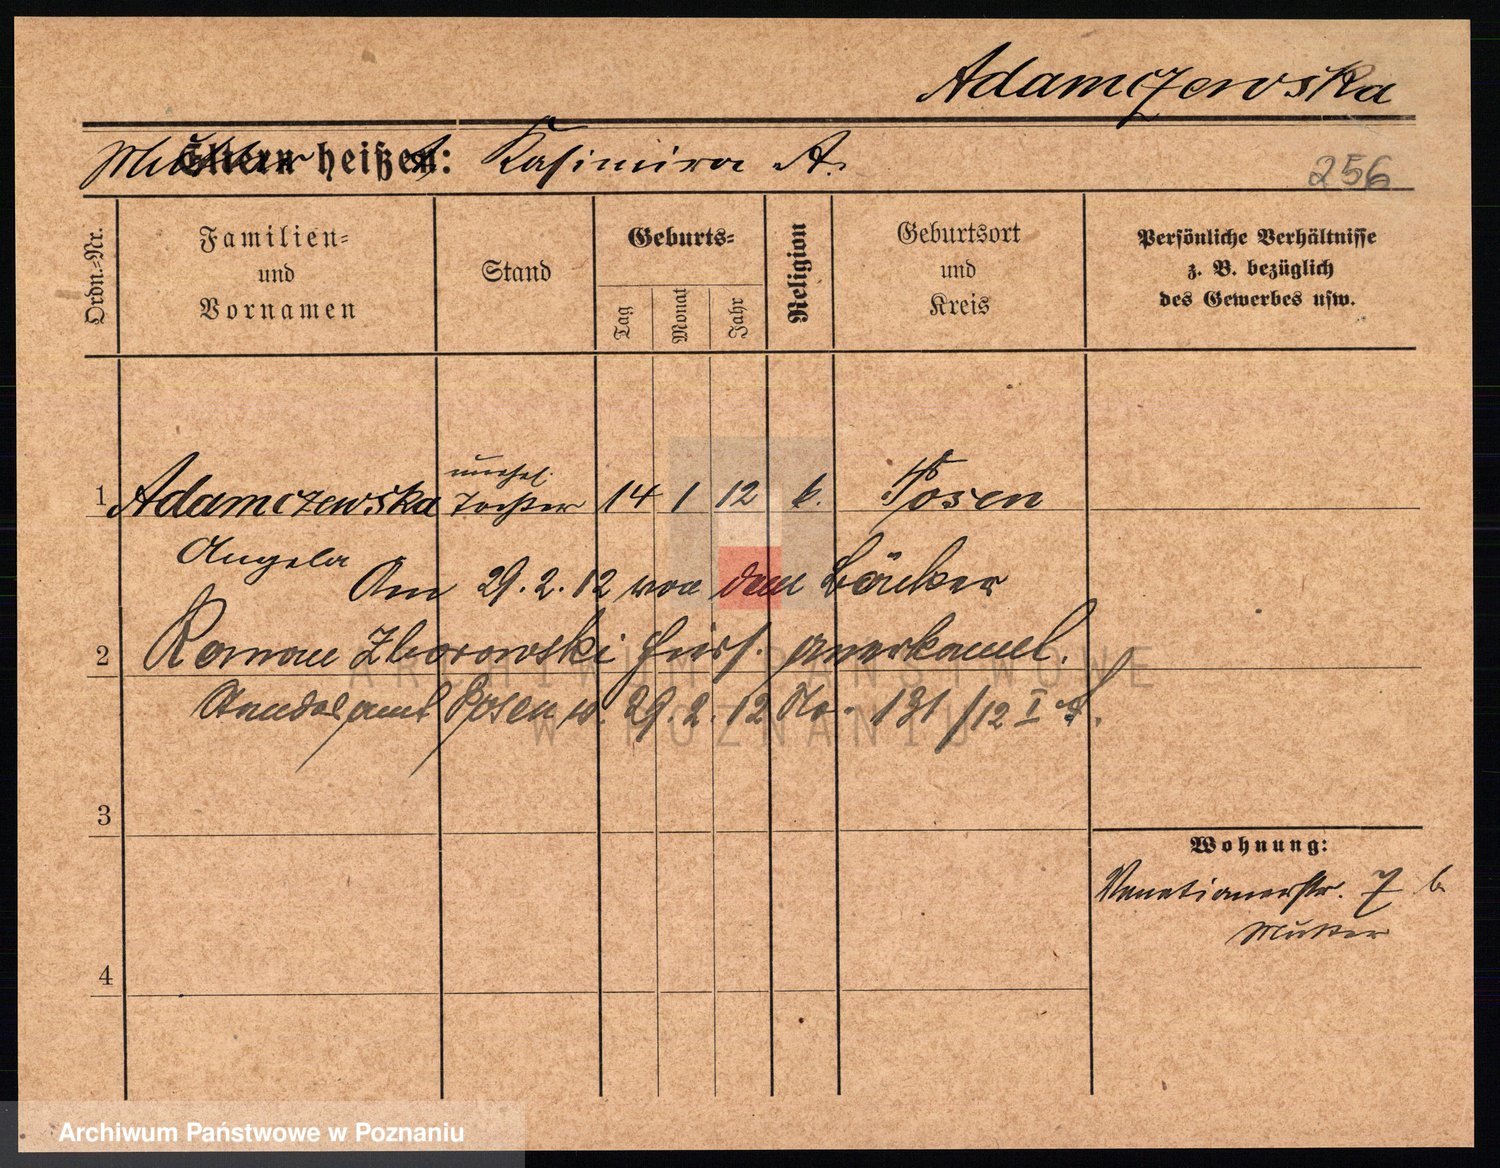 Adamczewska
Mutter heißt: Kasimira A.
256
Ordn.-Nr.
Familien-
und
Vornamen
Stand
Geburts-
Tag
Monat
Jahr
Religion
Geburtsort
und
Kreis
Persönliche Verhältnisse
z. B. bezüglich
des Gewerbes usw.
unehel.
1 Adamczewska Tochter 14 1 12 k. Posen
Angela
Am 29.2.12 von dem Bäcker
2 Roman Zborowski hiers. anerkannt.
Standesamt Posen v. 29.2.12 No. 131/12 I
ARCHIWUM PAŃSTWOWE
W POZNANIU
3
Wohnung:
Venetianerstr. 7 b
Mutter
4
Archiwum Państwowe w Poznaniu